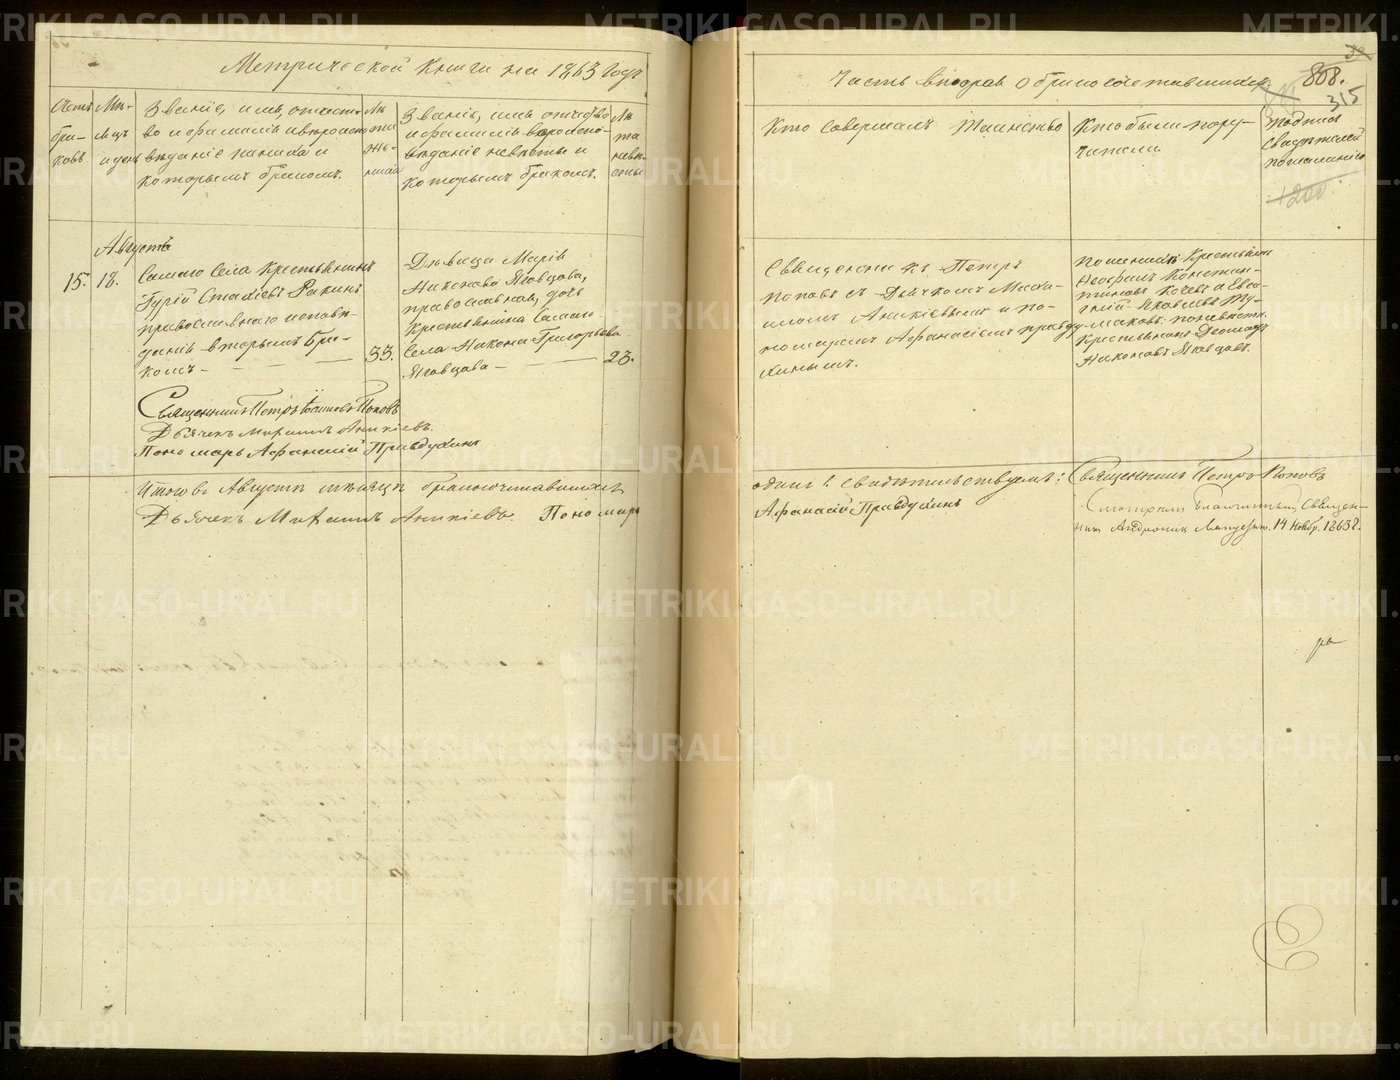 Метрической книги на 1863 годъ
Счетъ бра-ковъ
Мѣ-сяцъ и день
Званіе, имя, отчест-
во и фамилія и вѣроиспо-
вѣданіе жениха и
которымъ бракомъ.
Лѣта же-ниха
Званіе, имя, отчество
и фамилія и вѣроиспо-
вѣданіе невѣсты и
которымъ бракомъ.
Лѣ-та невѣ-сты
Августъ
15. 18.
Самаго Села Крестьянинъ
Гурій Стахіевъ Ракинъ
православнаго исповѣ-
данія вторымъ бра-
комъ - 33.
Дѣвица Марія
Наконова Яговцова,
православная, дочь
Крестьянина Самаго
Села Накона Григорьева
Яговцова - 23.
Священникъ Петръ Іоанновъ Поповъ
Дьячекъ Михаилъ Аникіевъ.
Пономарь Афанасій Правдухинъ
Итого въ Августѣ мѣсяцѣ бракосочитавшихся
Дьячекъ Михаилъ Аникіевъ. Пономарь
Часть вторая о бракосочетавшихся
32
808.
315
Кто совершалъ Таинство
Кто были пору-
чители
Подпись
Свидѣтелей
по желанію
1200
Священникъ Петръ
Поповъ съ Дьячкомъ Миха-
иломъ Аникіевымъ и по-
номаремъ Афанасіемъ Правду-
хинымъ.
По женихѣ Крестьяне
Феофанъ Констан-
тиновъ и Евге-
ній Яковлевъ Ту-
маковъ. по невѣстѣ
Крестьянинъ
Наконовъ Яговцовъ.
одинъ 1. свидѣтельствуемъ: Священникъ Петръ Поповъ
Афанасій Правдухинъ
Смотрѣлъ Благочинный, Священ-
никъ Андроникъ 14 Ноябр. 1863 г.